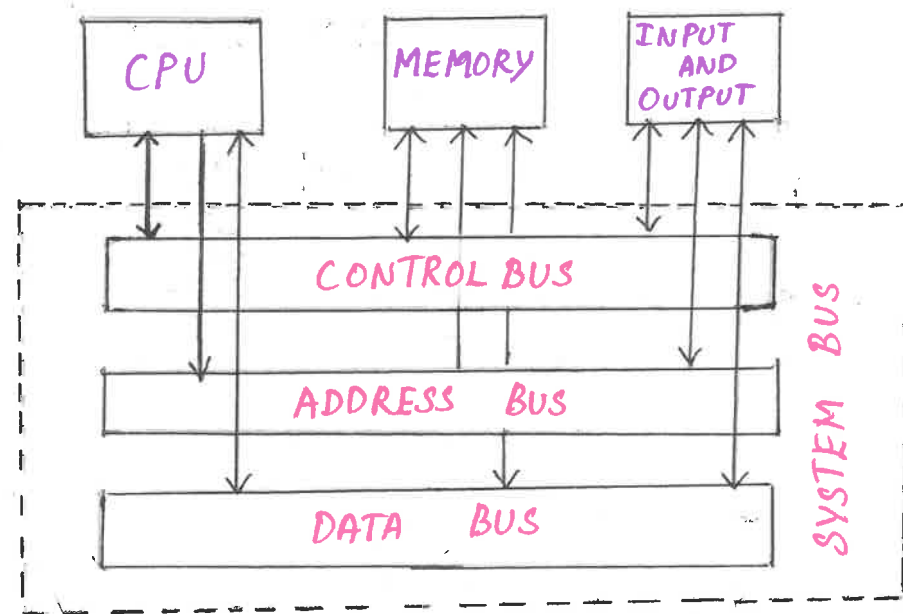 CPU
MEMORY
INPUT
AND
OUTPUT
CONTROL BUS
ADDRESS BUS
DATA BUS
SYSTEM BUS